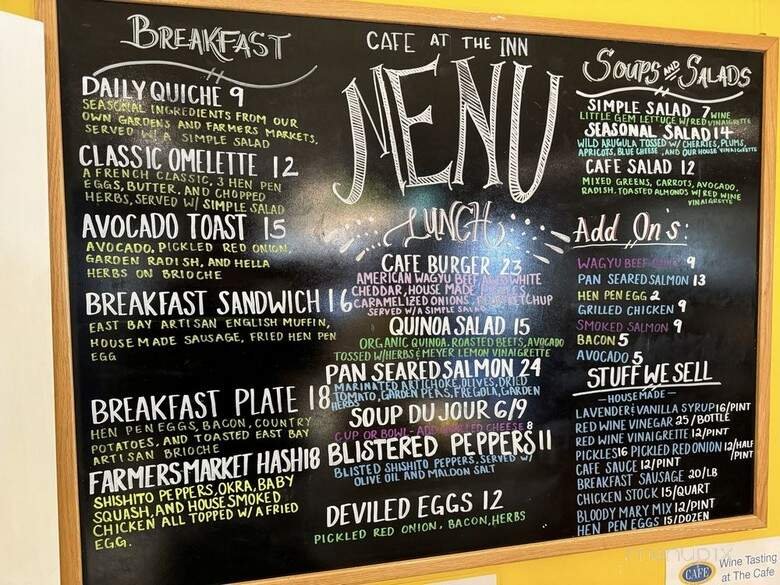 BREAKFAST
DAILY QUICHE 9
SEASONAL INGREDIENTS FROM OUR
OWN GARDENS AND FARMERS MARKETS,
SERVED W/ A SIMPLE SALAD
CLASSIC OMELETTE 12
A FRENCH CLASSIC, 3 HEN PEN
EGGS, BUTTER, AND CHOPPED
HERBS, SERVED W/ SIMPLE SALAD
AVOCADO TOAST 15
AVOCADO, PICKLED RED ONION,
GARDEN RADISH, AND HELLA
HERBS ON BRIOCHE
BREAKFAST SANDWICH 16
EAST BAY ARTISAN ENGLISH MUFFIN,
HOUSE MADE SAUSAGE, FRIED HEN PEN
EGG
BREAKFAST PLATE 18
HEN PEN EGGS, BACON, COUNTRY
POTATOES, AND TOASTED EAST BAY
ARTISAN BRIOCHE
FARMERS MARKET HASH 18
SHISHITO PEPPERS, OKRA, BABY
SQUASH, AND HOUSE SMOKED
CHICKEN ALL TOPPED W/ A FRIED
EGG.
CAFE AT THE INN
MENU
LUNCH
CAFE BURGER 23
AMERICAN WAGYU BEEF, WHITE
CHEDDAR, HOUSE MADE
CARAMELIZED ONIONS, KETCHUP
SERVED W/ A SIMPLE SALAD
QUINOA SALAD 15
ORGANIC QUINOA, ROASTED BEETS, AVOCADO
TOSSED W/ HERBS & MEYER LEMON VINAIGRETTE
PAN SEARED SALMON 24
MARINATED ARTICHOKE, OLIVES, DRIED
TOMATO, GARDEN PEAS, FREGOLA, GARDEN
HERBS
SOUP DU JOUR 6/9
CUP OR BOWL - ADD CHEESE 8
BLISTERED PEPPERS 11
BLISTED SHISHITO PEPPERS, SERVED W/
OLIVE OIL AND MALDON SALT
DEVILED EGGS 12
PICKLED RED ONION, BACON, HERBS
SOUPS AND SALADS
SIMPLE SALAD 7
LITTLE GEM LETTUCE W/ RED WINE VINAIGRETTE
SEASONAL SALAD 14
WILD ARUGULA TOSSED W/ CHERRIES, PLUMS,
APRICOTS, BLUE CHEESE, AND OUR HOUSE VINAIGRETTE
CAFE SALAD 12
MIXED GREENS, CARROTS, AVOCADO,
RADISH, TOASTED ALMONDS W/ RED WINE
VINAIGRETTE
Add On's:
WAGYU BEEF 9
PAN SEARED SALMON 13
HEN PEN EGG 2
GRILLED CHICKEN 9
SMOKED SALMON 9
BACON 5
AVOCADO 5
STUFF WE SELL
-HOUSEMADE-
LAVENDER & VANILLA SYRUP 16/PINT
RED WINE VINEGAR 25/BOTTLE
RED WINE VINAIGRETTE 12/PINT
PICKLES 16 PICKLED RED ONION 12/HALF
/PINT
CAFE SAUCE 12/PINT
BREAKFAST SAUSAGE 20/LB
CHICKEN STOCK 15/QUART
BLOODY MARY MIX 12/PINT
HEN PEN EGGS 15/DOZEN
menupix
CAFE
Wine Tasting
at The Cafe